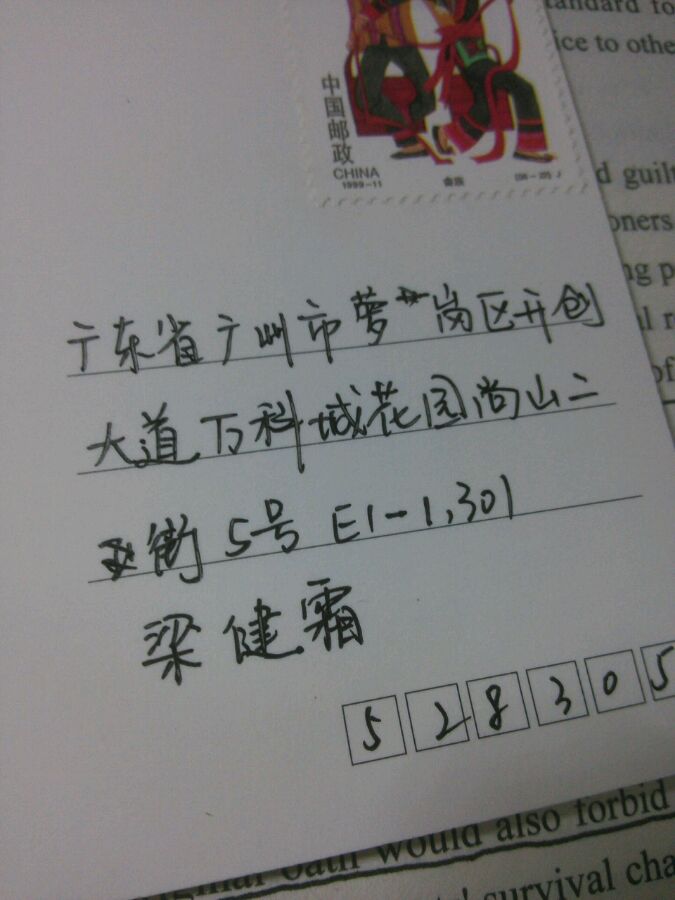 中国邮政
CHINA
1999-11
(56-20) J
tandard fo
ice to othe
d guilt
oners
ng p
l r
of
广东省广州市萝岗区开创
大道万科城花园尚山二
街5号E1-1,301
梁健霜
528305
ginal oath would also forbid
survival cha